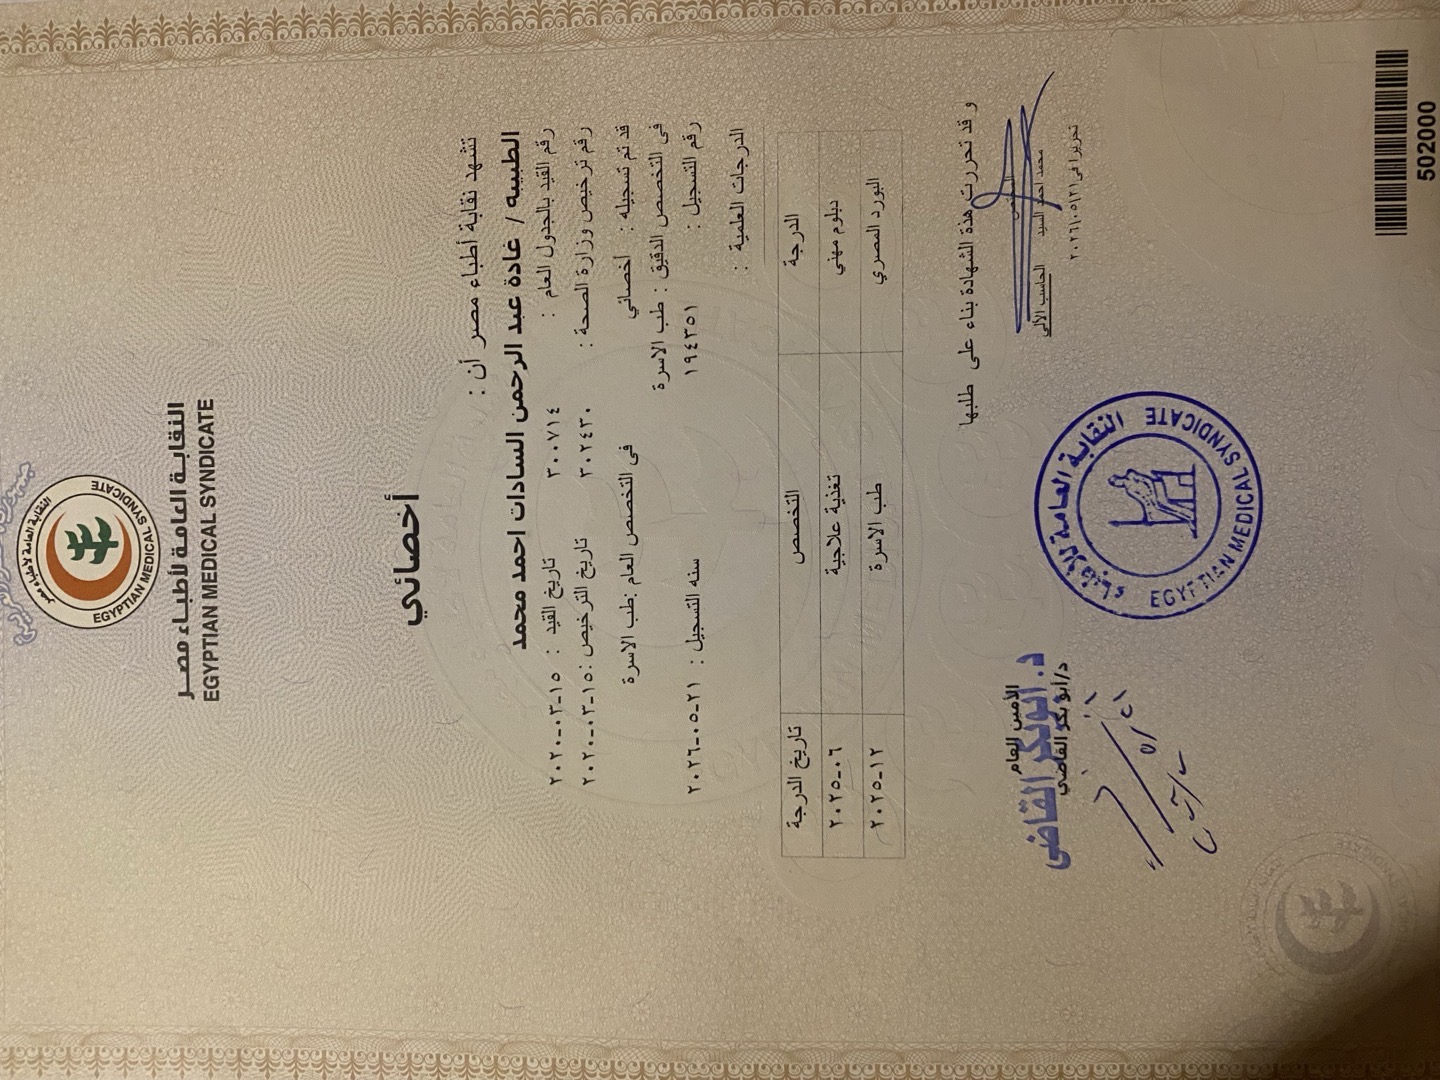 النقابة العامة لأطباء مصر
EGYPTIAN MEDICAL SYNDICATE
النقابة العامة لأطباء مصر
EGYPTIAN MEDICAL SYNDICATE
أخصائي
تشهد نقابة أطباء مصر أن :
الطبيبه / غادة عبد الرحمن السادات احمد محمد
رقم القيد بالجدول العام : ٣٠٠٧١٤ تاريخ القيد : ١٥-٠٣-٢٠٢٠
رقم ترخيص وزارة الصحة : ٣٠٢٤٣٠ تاريخ الترخيص : ١٥-٠٣-٢٠٢٠
قد تم تسجيله : اخصائي فى التخصص العام : طب الاسرة
فى التخصص الدقيق : طب الاسرة
رقم التسجيل : ١٩٤٣٥١ سنه التسجيل : ٢١-٠٥-٢٠٢٦
الدرجات العلمية :
الدرجة التخصص تاريخ الدرجة
دبلوم مهني تغذية علاجية ٠٦-٢٠٢٥
البورد المصري طب الاسرة ١٢-٢٠٢٥
و قد تحررت هذة الشهادة بناء على طلبها
المختص
محمد احمد السيد الحاسب الألي
تحريرا في ٢٠٢٦/٠٥/٢١
النقابة العامة للأطباء
EGYPTIAN MEDICAL SYNDICATE
الأمين العام
د. أبوبكر القاضى
د/أبو بكر القاضي
502000